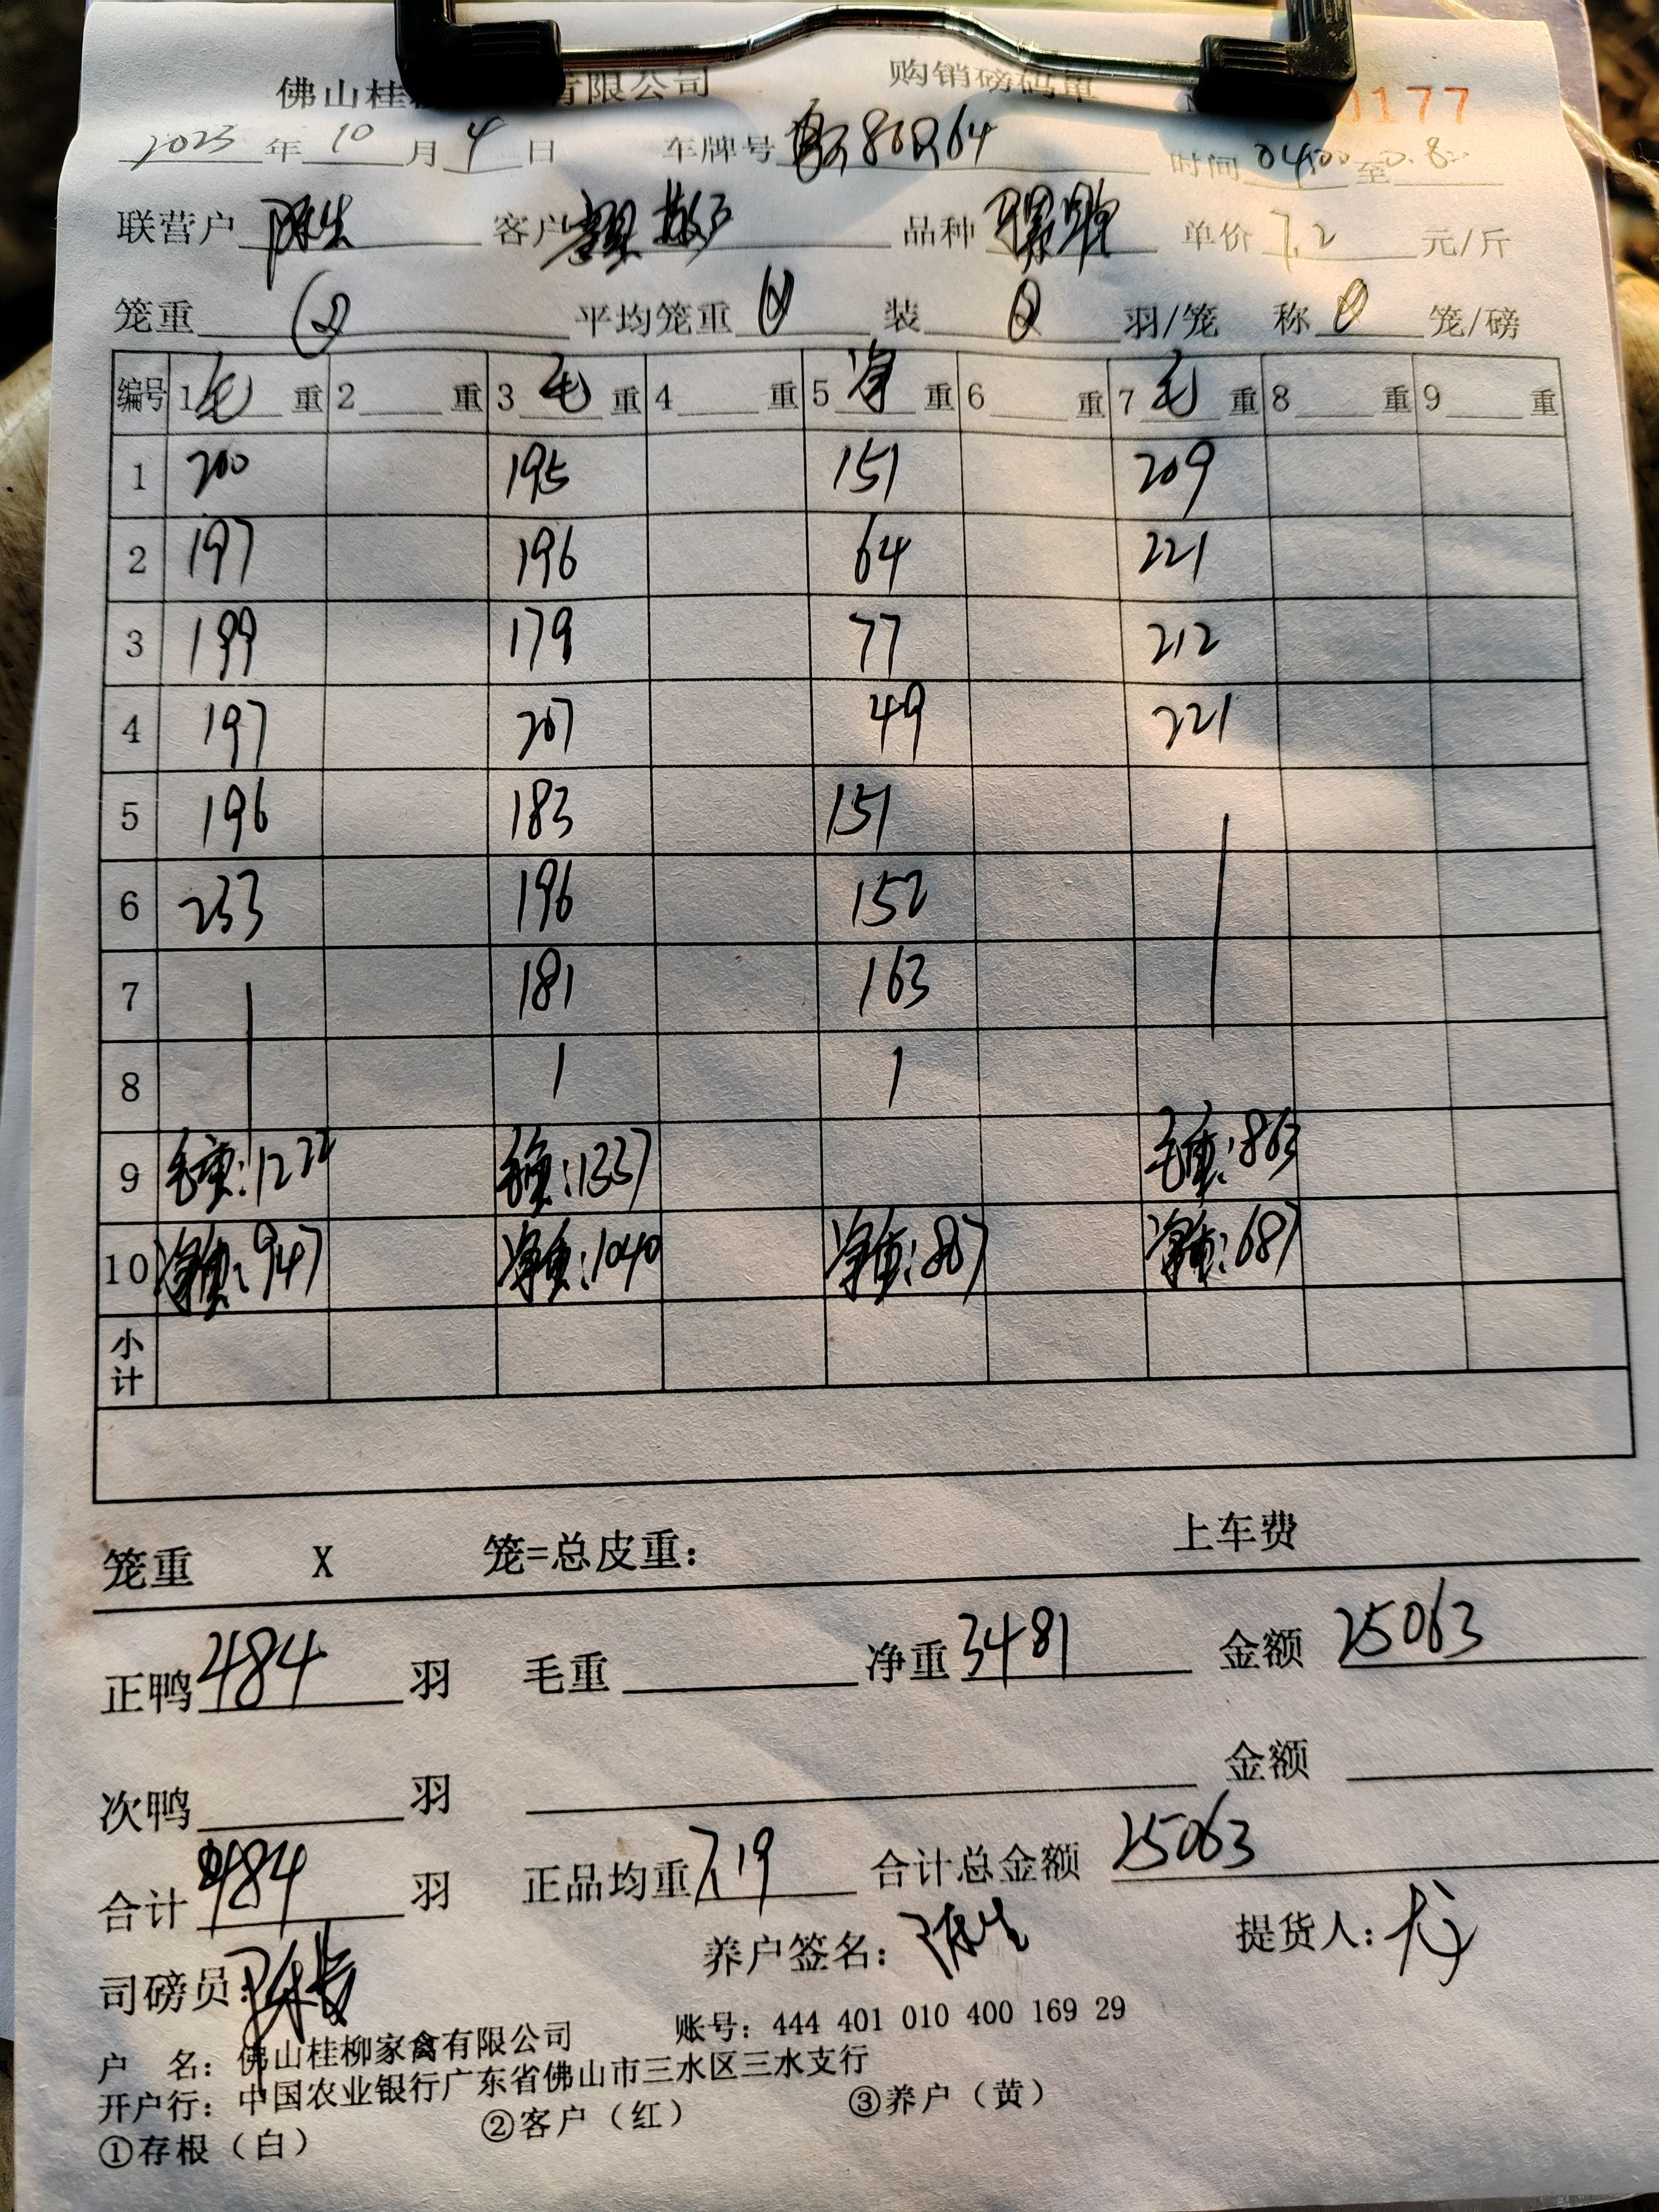 佛山桂 有限公司 购销磅码单 0177
2023年10月4日 车牌号 80R64 时间0400至
联营户 陈生 客户 散户 品种 单价7.2元/斤
笼重 平均笼重 装 羽/笼 称 笼/磅
编号 1毛重 2重 3毛重 4重 5净重 6重 7毛重 8重 9重
1 200 195 151 209
2 197 196 64 221
3 199 179 77 212
4 197 207 49 221
5 196 183 151
6 233 196 152
7 181 163
8
9 毛重:1222 毛重:1337 毛重:863
10 净重:947 净重:1040 净重:807 净重:687
小计
笼重 X 笼=总皮重: 上车费
正鸭484羽 毛重 净重3481 金额25063
次鸭 羽 金额
合计484羽 正品均重7.19 合计总金额25063
司磅员: 养户签名:陈生 提货人:
户 名:佛山桂柳家禽有限公司 账号:444 401 010 400 169 29
开户行:中国农业银行广东省佛山市三水区三水支行
①存根(白) ②客户(红) ③养户(黄)